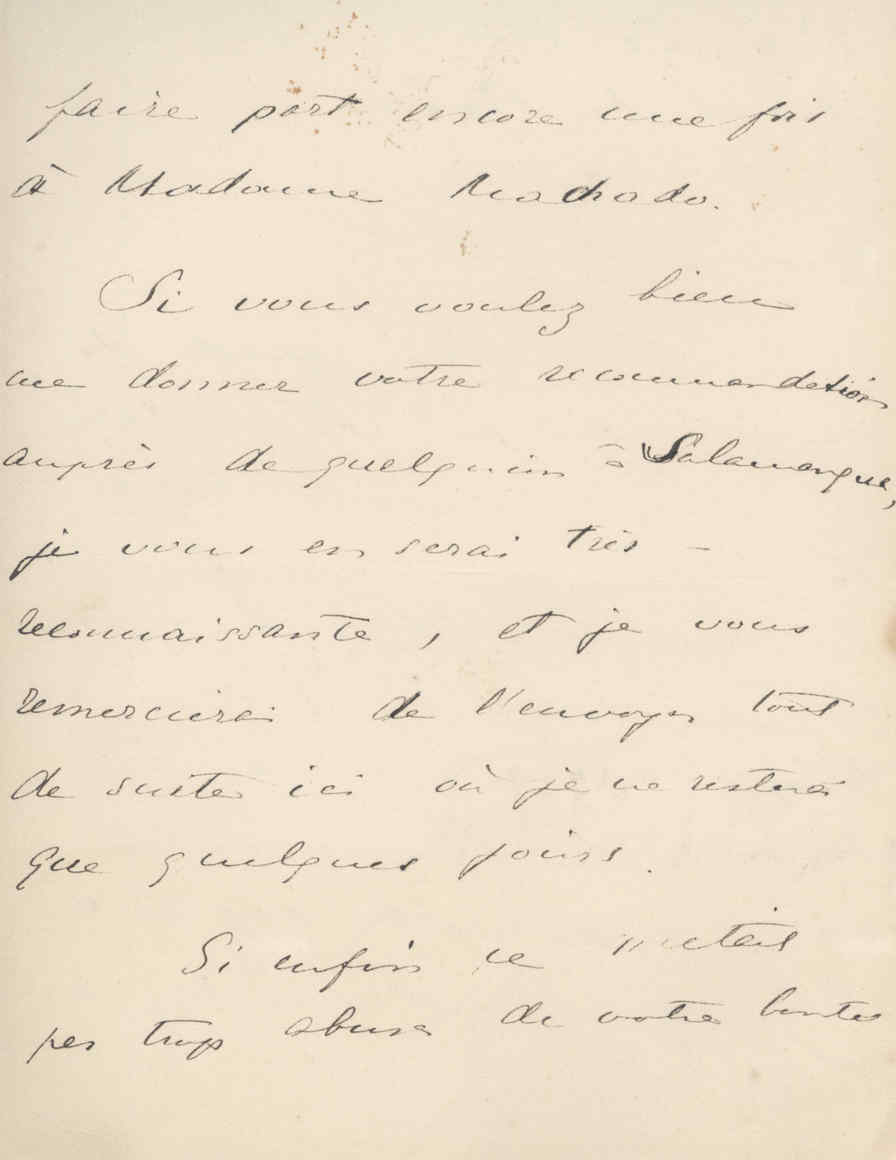 faire part encore une fois
à Madame Machado.
Si vous voulez bien
me donner votre recommandation
auprès de quelqu'un à Salamanque,
je vous en serai très –
reconnaissante, et je vous
remercierai de l'envoyer tout
de suite ici où je ne resterai
que quelques jours.
Si enfin ce n'était
pas trop abuser de votre bonté